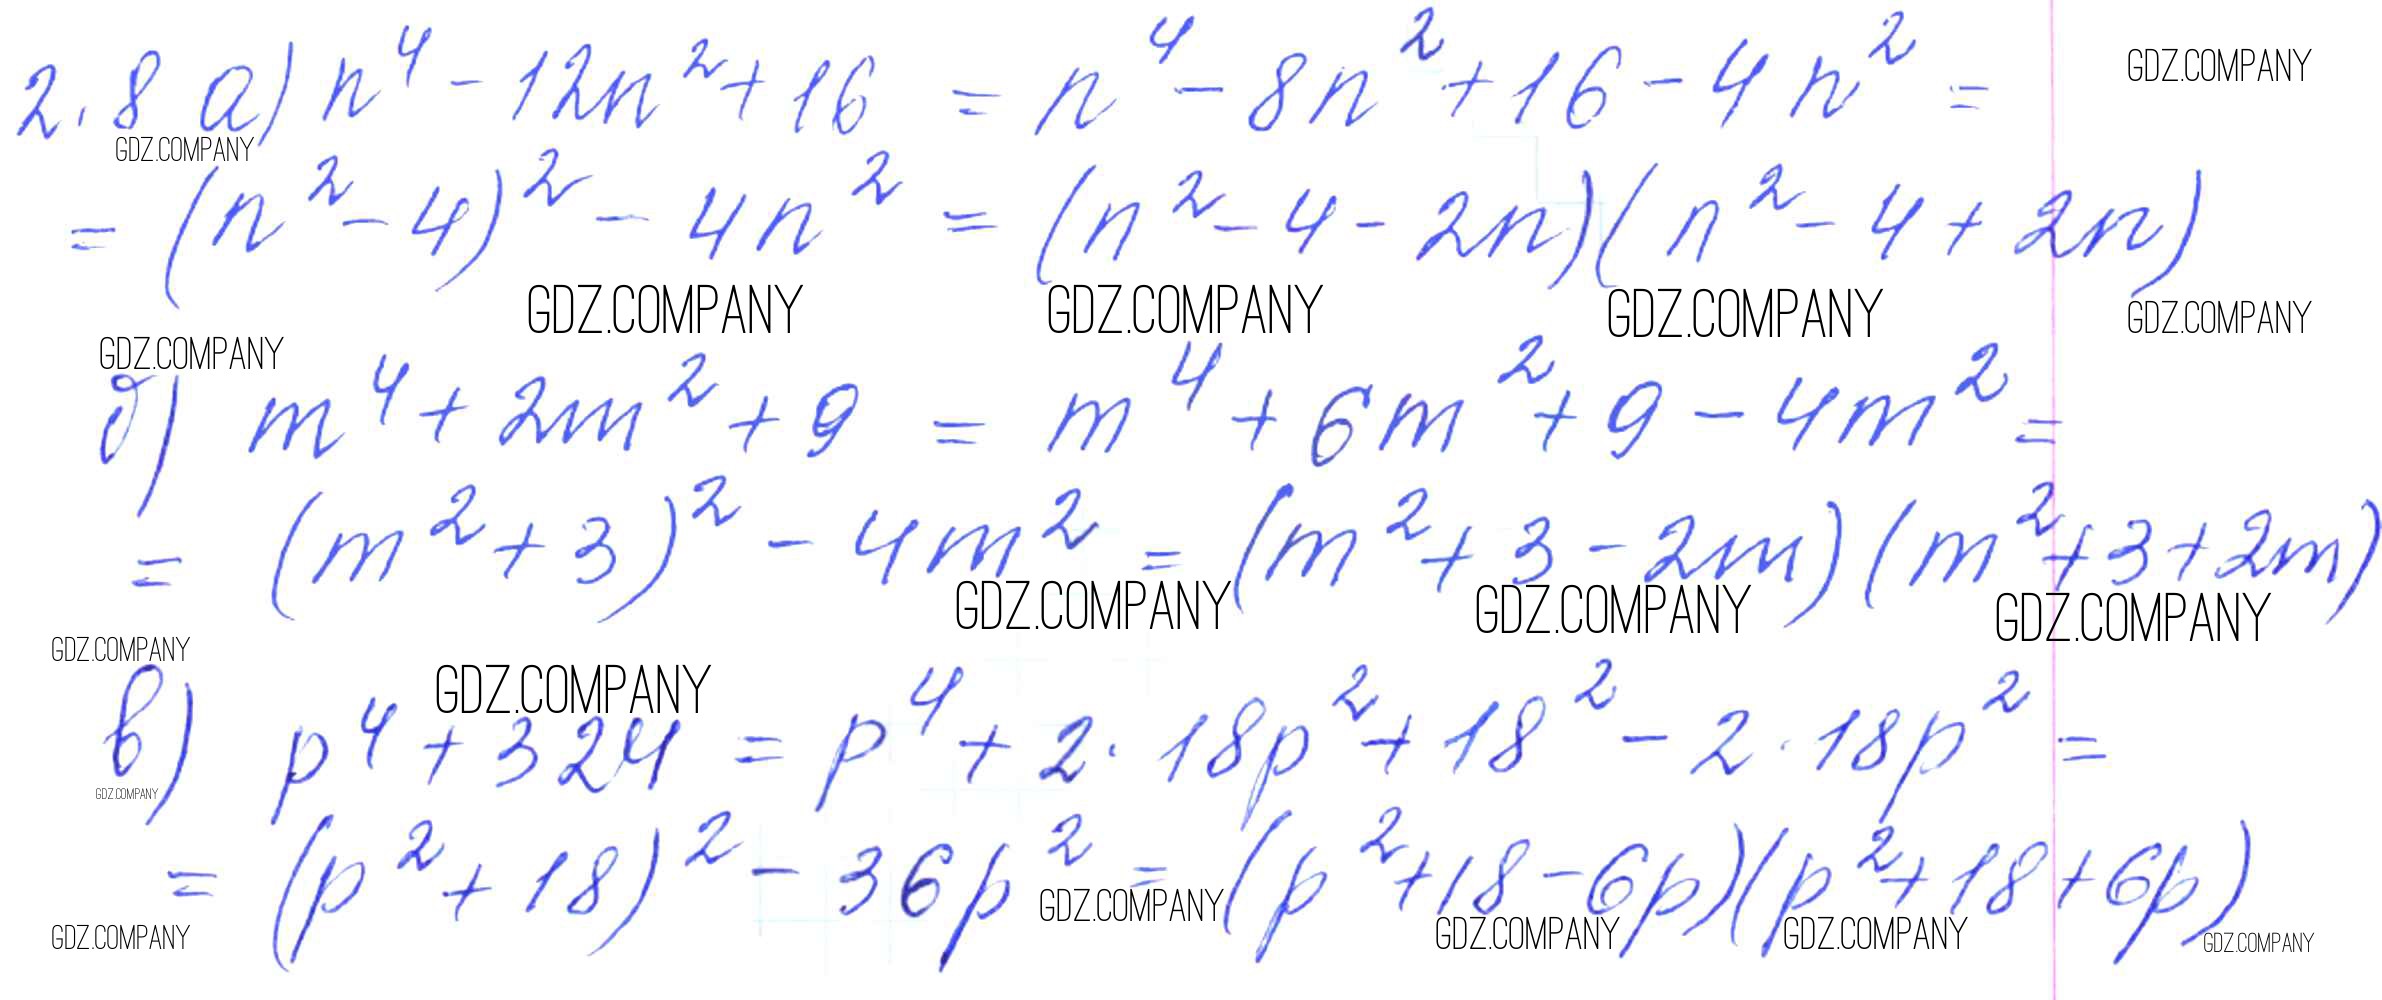 2.8 а) n⁴ - 12n² + 16 = n⁴ - 8n² + 16 - 4n² =
GDZ.COMPANY
GDZ.COMPANY
= (n² - 4)² - 4n² = (n² - 4 - 2n)(n² - 4 + 2n)
GDZ.COMPANY GDZ.COMPANY GDZ.COMPANY GDZ.COMPANY
GDZ.COMPANY
б) m⁴ + 2m² + 9 = m⁴ + 6m² + 9 - 4m² =
= (m² + 3)² - 4m² = (m² + 3 - 2m)(m² + 3 + 2m)
GDZ.COMPANY GDZ.COMPANY GDZ.COMPANY
GDZ.COMPANY
GDZ.COMPANY
в) p⁴ + 324 = p⁴ + 2 · 18p² + 18² - 2 · 18p² =
GDZ.COMPANY
= (p² + 18)² - 36p² = (p² + 18 - 6p)(p² + 18 + 6p)
GDZ.COMPANY GDZ.COMPANY GDZ.COMPANY GDZ.COMPANY GDZ.COMPANY